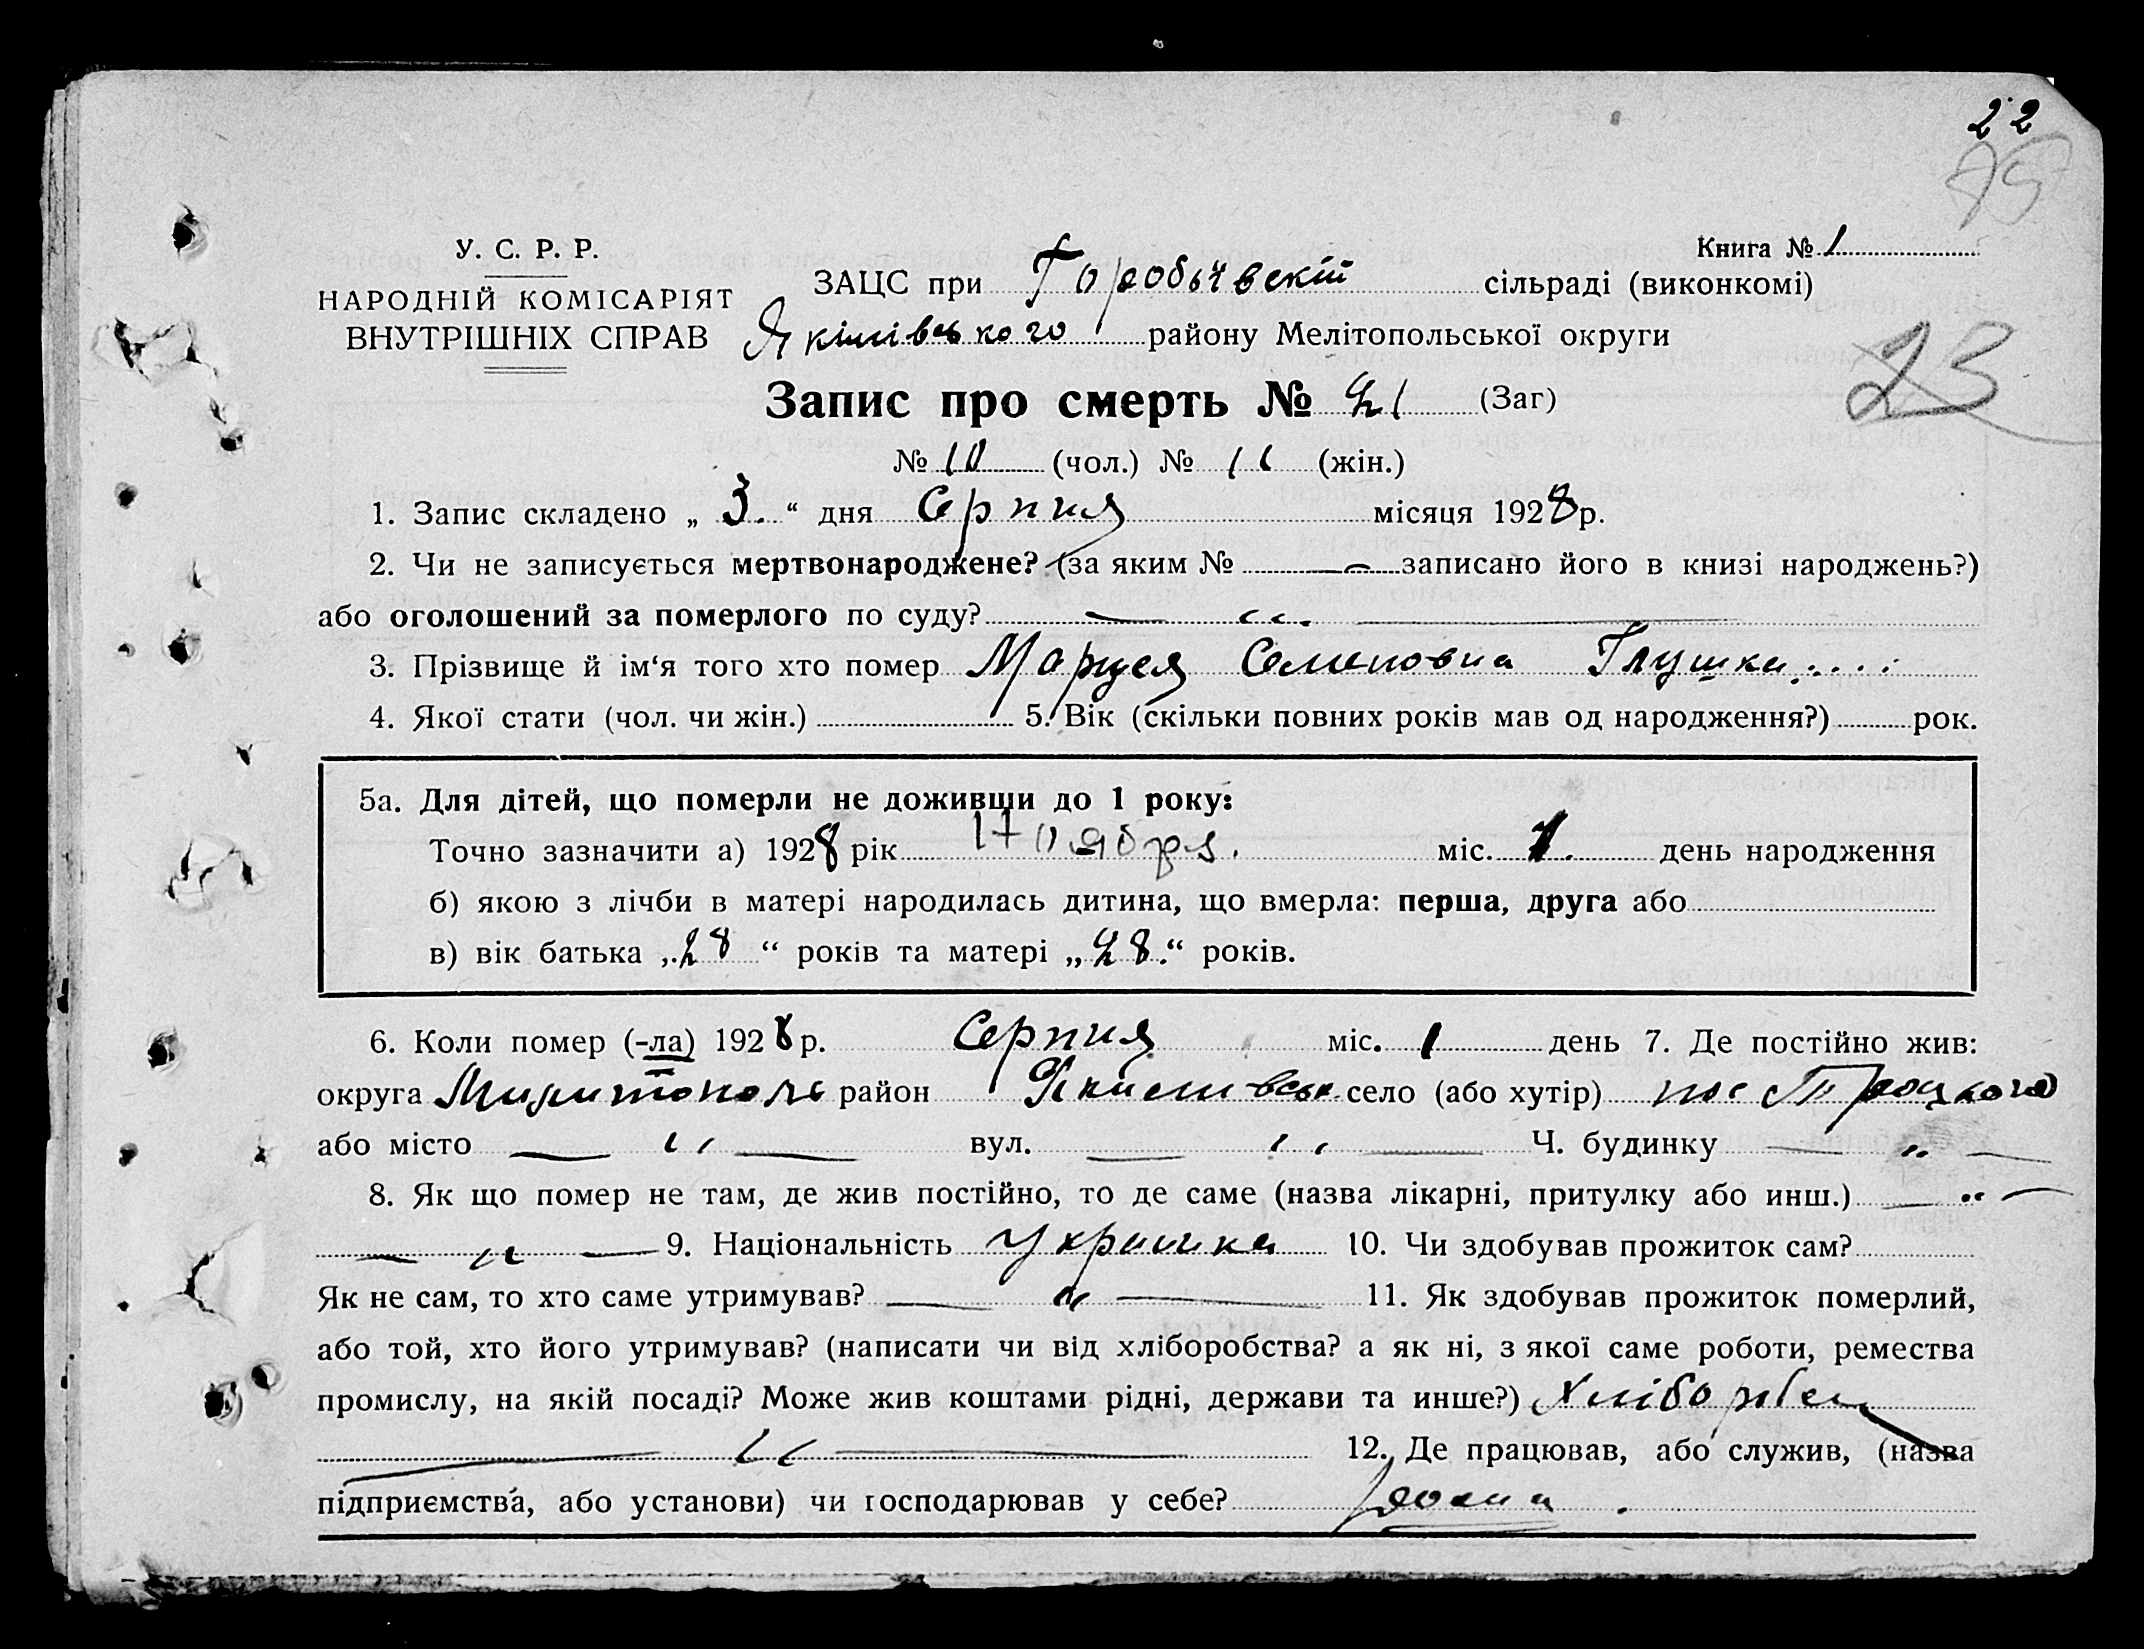 22
75
У. С. Р. Р.
Книга № 1
НАРОДНІЙ КОМІСАРІЯТ
ВНУТРІШНІХ СПРАВ
ЗАЦС при сільраді (виконкомі)
Якімівського району Мелітопольської округи
23
Запис про смерть № 21 (Заг)
№ 10 (чол.) № 11 (жін.)
1. Запис складено „ 3. “ дня Серпня місяця 1928 р.
2. Чи не записується мертвонароджене? (за яким № — записано його в книзі народжень?)
або оголошений за померлого по суду? — „ —
3. Прізвище й ім‘я того хто помер Семеновна Глушка
4. Якої стати (чол. чи жін.) 5. Вік (скільки повних років мав од народження?) рок.
5а. Для дітей, що померли не доживши до 1 року:
Точно зазначити а) 1928 рік міс. день народження
б) якою з лічби в матері народилась дитина, що вмерла: перша, друга або
в) вік батька „ 28 “ років та матері „ 28. “ років.
6. Коли помер (-ла) 1928 р. Серпня міс. 1 день 7. Де постійно жив:
округа район село (або хутір) пос Троцкого
або місто — „ — вул. — „ — Ч. будинку — „ —
8. Як що помер не там, де жив постійно, то де саме (назва лікарні, притулку або инш.) — „ —
— „ — 9. Національність Українка 10. Чи здобував прожиток сам?
Як не сам, то хто саме утримував? — „ — 11. Як здобував прожиток померлий,
або той, хто його утримував? (написати чи від хліборобства? а як ні, з якої саме роботи, ремества
промислу, на якій посаді? Може жив коштами рідні, держави та инше?)
— „ — 12. Де працював, або служив, (назва
підприємства, або установи) чи господарював у себе?